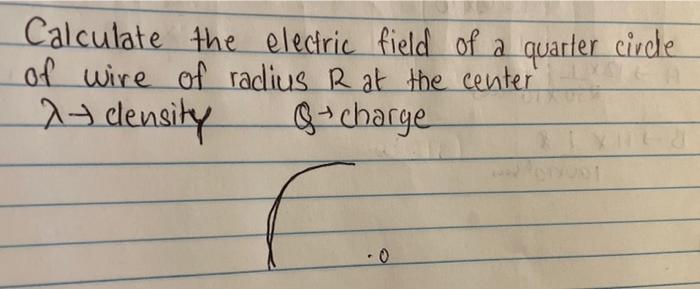 Calculate the electric field of a quarter circle
of wire of radius R at the center
λ→ density Q→charge
.0